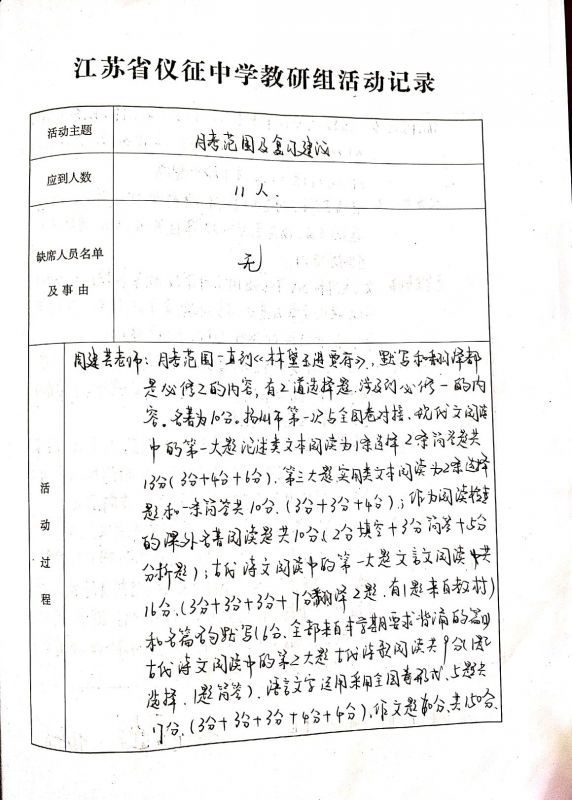 江苏省仪征中学教研组活动记录
活动主题
月考范围及复习建议
应到人数
11人.
缺席人员名单
及事由
无
活动过程
周建其老师：月考范围一直到《林黛玉进贾府》，默写和翻译都
是必修2的内容，有2道选择题涉及到必修一的内
容。名著为10分。扬州市第一次与全国卷对接、现代文阅读
中的第一大题论述类文本阅读为1条选择2条简答题共
13分(3分+4分+6分)，第二大题实用类文本阅读为2条选择
题和一条简答共10分.(3分+3分+4分)；作为阅读检查
的课外名著阅读题共10分(2分填空+3分简答+5分
分析题)；古代诗文阅读中的第一大题文言文阅读共
16分.(3分+3分+3分+7分翻译2题.有1题来自教材)
和名篇名句默写(6分.全部来自本学期要求背诵的篇目)
古代诗文阅读中的第2大题古代诗歌阅读共9分(1题
选择.1题简答)．语言文字运用采用全国卷形式、5题共
17分.(3分+3分+3分+4分+4分).作文题60分.共150分.